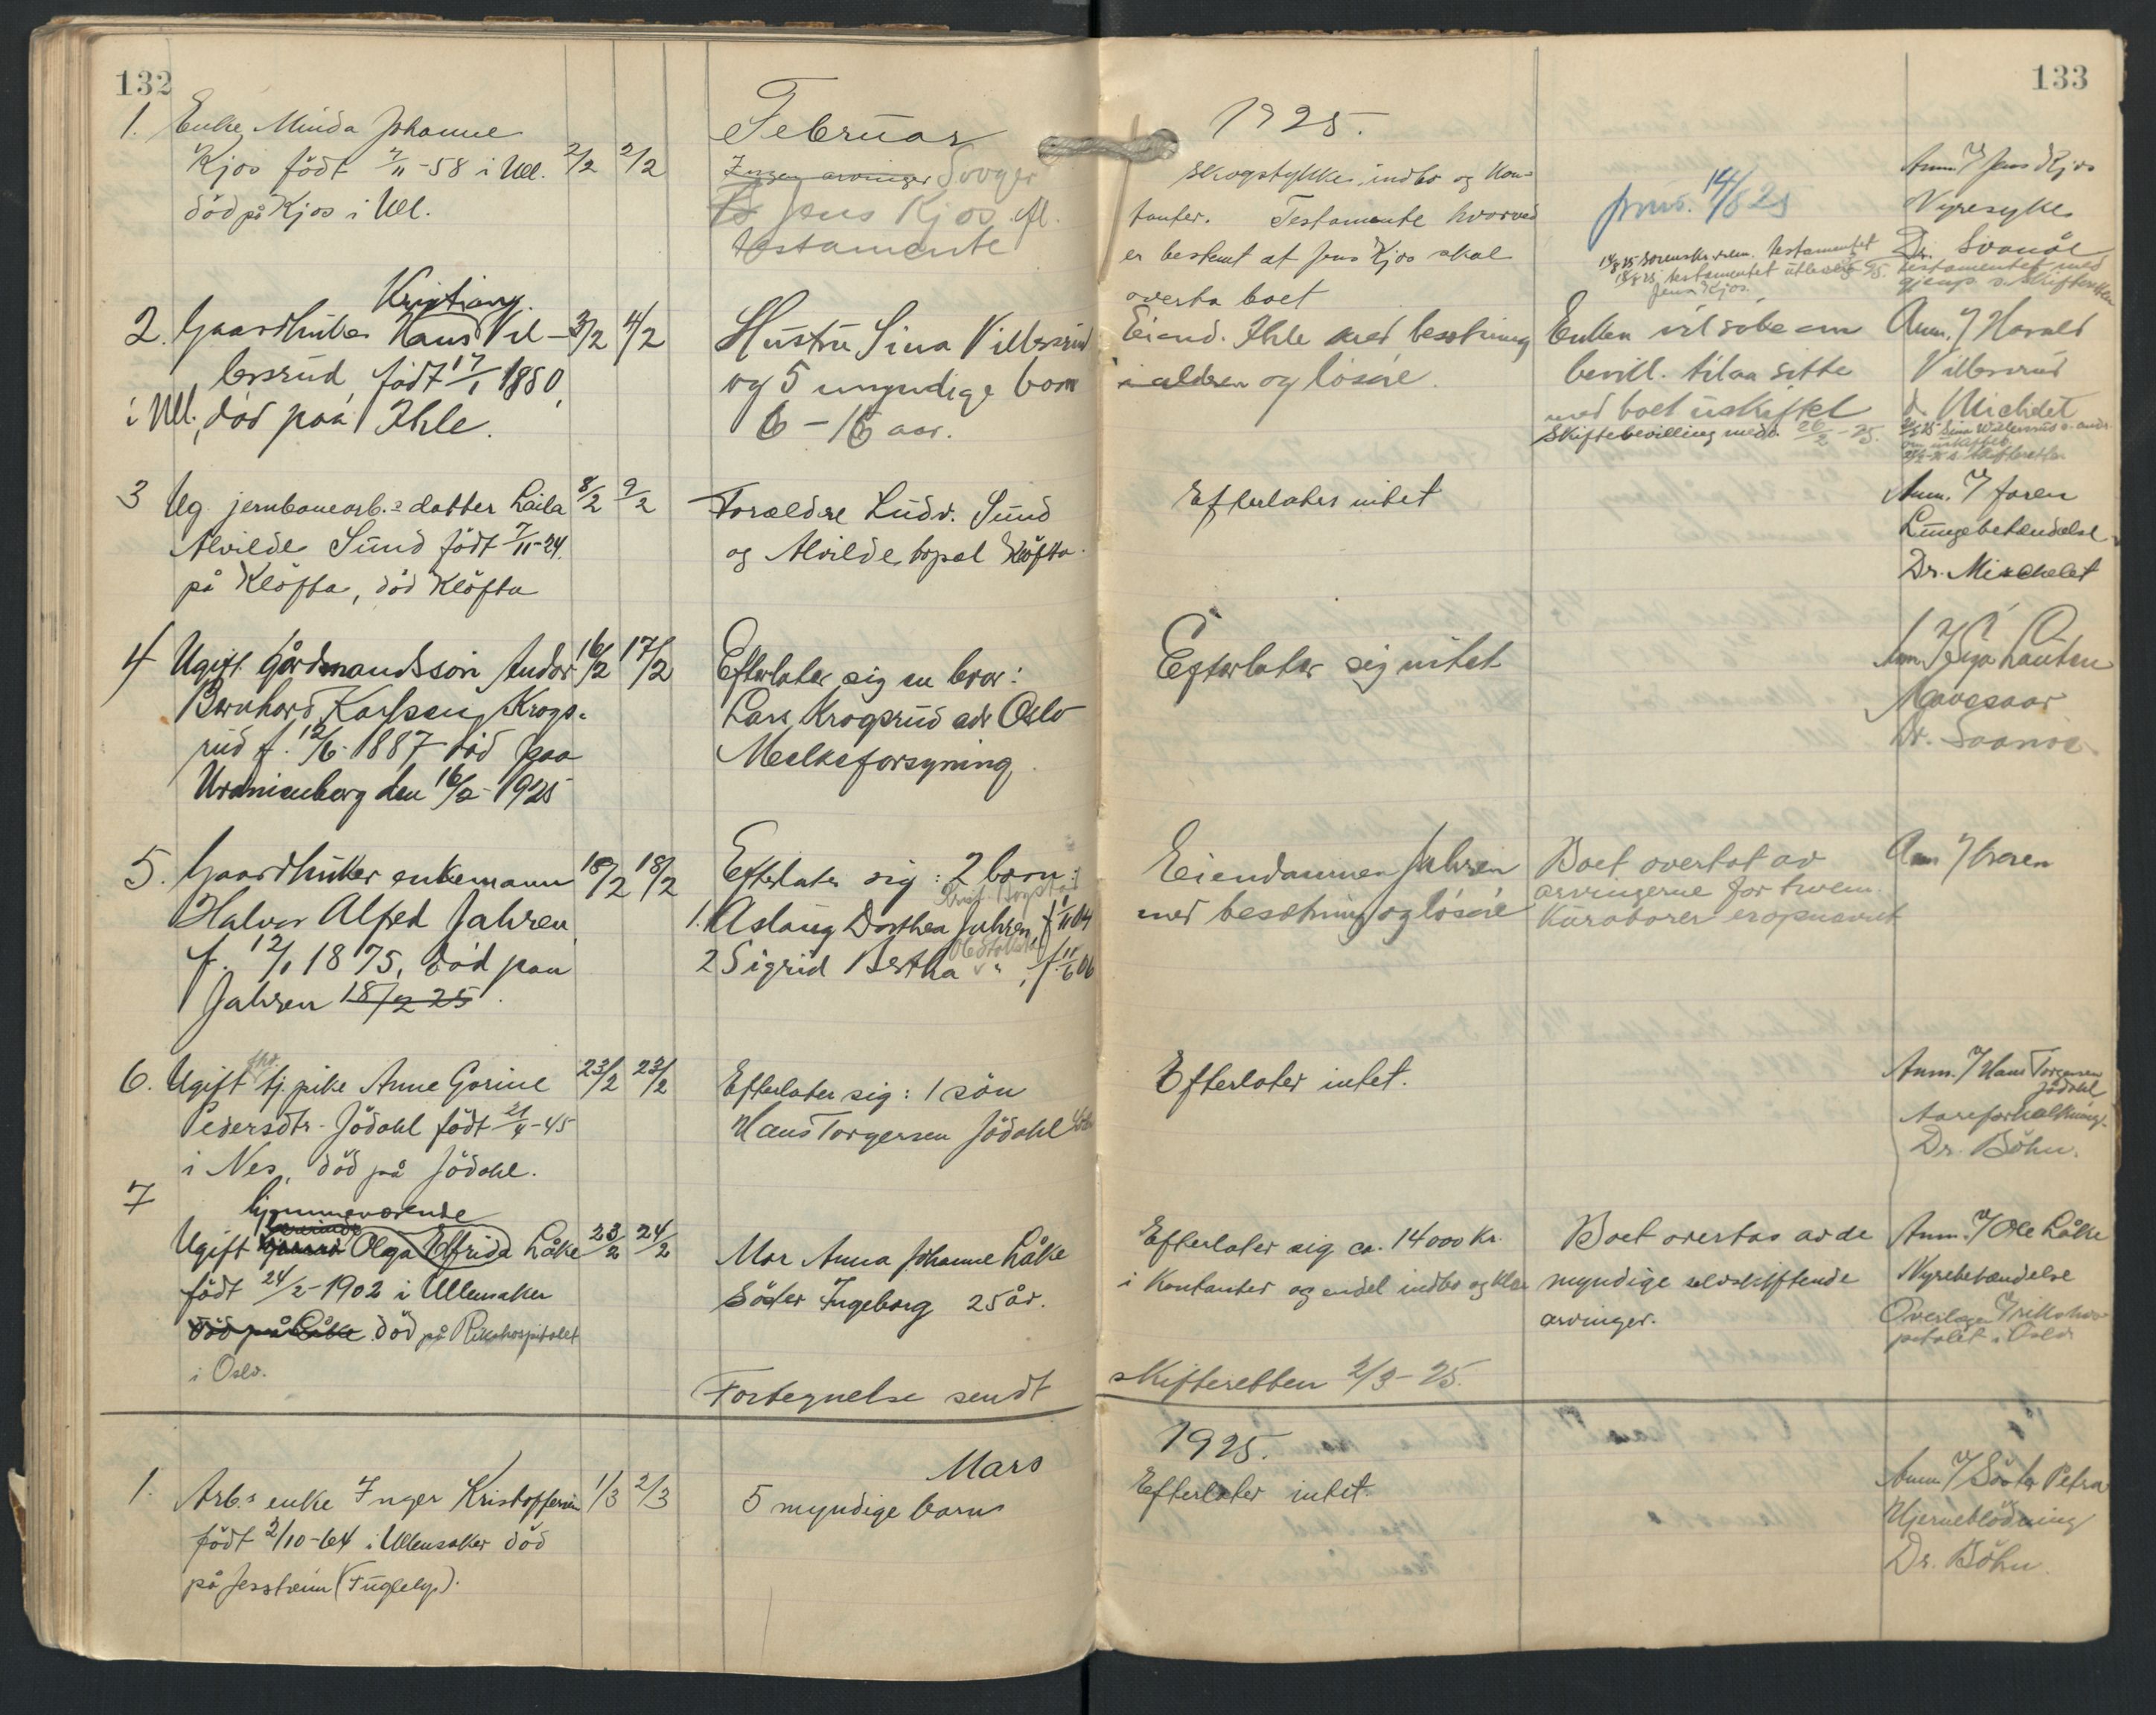 132
133
Februar
1925.
1. Enke Minda Johanne
Kjos födt 7/11-58 i Ull.
död på Kjos i Ull.
2/2
2/2
Ingen arvinger Svoger
Jens Kjos efl.
testamente
Skogstykke, indbo og kon-
tanter. Testamente hvorved
er bestemt at Jens Kjos skal
overta boet
14/8 25
testamentet
testamentet utlevert
Jens Kjos.
Anm. / Jens Kjos
Nyresyke
Dr. Svanöe
testamentet med
skifteretten
Kristian
2. Gaardbruker Hans Vil-
lersrud, födt 17/1 1880,
i Ull., död paa Ihle.
3/2
4/2
Hustru Sina Villersrud
og 5 umyndige barn
6 – 16 aar.
Eiend. Ihle med besetning
og lösöre.
Enken vil söke om
bevill. til aa sitte
med boet uskiftet
Skiftebevilling medd. 26/2-25.
Anm. / Harald
Villersrud
d. Michelet
Sina Willersrud
om uskiftet
3 Ug. jernbanearb.s datter Laila
Alvilde Sund födt 7/11-24.
på Klöfta, död Klöfta
8/2
9/2
Forældre Ludv. Sund
og Alvilde bopæl Klöfta.
Efterlater intet
Anm. / faren
Lungebetændelse
Dr. Mischelet
4 Ugift gårdmandssön Andor
Bernhard Karlsen Krogs-
rud f. 12/6-1887 död paa
Uranienborg den 16/2-1925
16/2
17/2
Efterlater sig en bror:
Lars Krogsrud adr. Oslo
Melkeforsyning.
Efterlater sig intet
Mavesaar
5. Gaardbruker enkemann
Halvor Alfred Jahren,
f. 12/1 1875, död paa
Jahren 18/2 25.
18/2
18/2
Efterlater sig: 2 barn:
1. Aslaug Dorthea Jahren, f. 1/11 04
2 Sigrid Bertha " " , f. 11/6 06
Eiendommen Jahren
med besetning og lösöre
Boet overtat av
arvingerne for hvem
kuratorer er opnævnt
Anm /
6. Ugift fhv. tj.pike Anne Gorine
Pedersdtr. Jödahl födt 21/4-45
i Nes, död på Jödahl.
23/2
23/2
Efterlater sig: 1 sön
Hans Torgersen Jödahl
Efterlater intet.
Anm. / Hans Torgersen
Jödahl
Aareforkalkning.
Dr. Böhn.
7
hjemmeværende
Ugift Olga Elfrida Låke
födt 24/2-1902 i Ullensaker
död på Låke död på Rikshospitalet
i Oslo.
23/2
24/2
Mor Anna Johanne Låke
Söster Ingeborg 25 år.
Efterlater sig ca. 14000 kr.
i kontanter og endel indbo og klær
Boet overtas av de
myndige selvskiftende
arvinger.
Anm. / Ole Låke
Nyrebetændelse
Overlægen / rikshos-
pitalet i Oslo
Fortegnelse sendt
skifteretten 2/3-25.
Mars
1925.
1. Arb.s enke Inger Kristoffersen
födt 2/10-64 i Ullensaker död
på Jessheim (Fuglely).
1/3
2/3
5 myndige barn
Efterlater intet.
Anm. / Söster Petra
Hjerneblödning
Dr. Böhn.